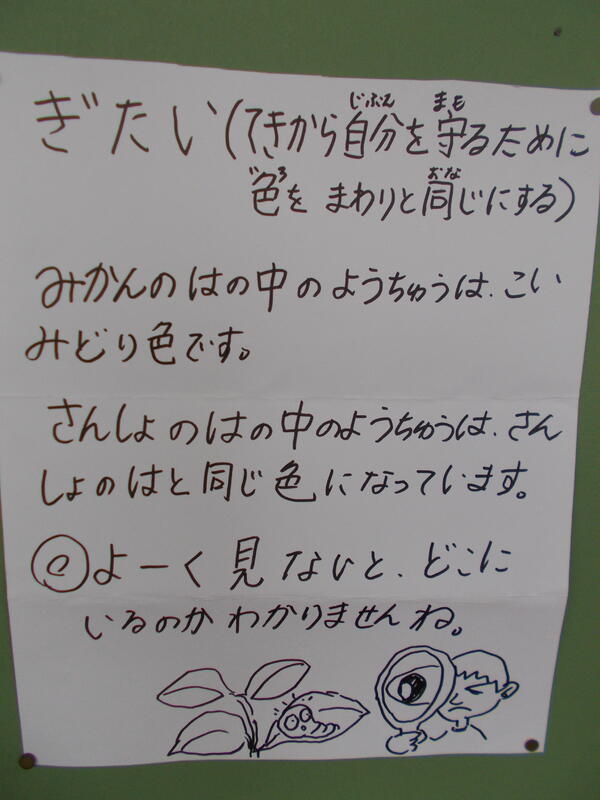 ぎたい(てきから自分を守るために
色をまわりと同じにする)
みかんのはの中のようちゅうは、こい
みどり色です。
さんしょのはの中のようちゅうは、さん
しょのはと同じ色になっています。
@よーく見ないと、どこに
いるのかわかりませんね。